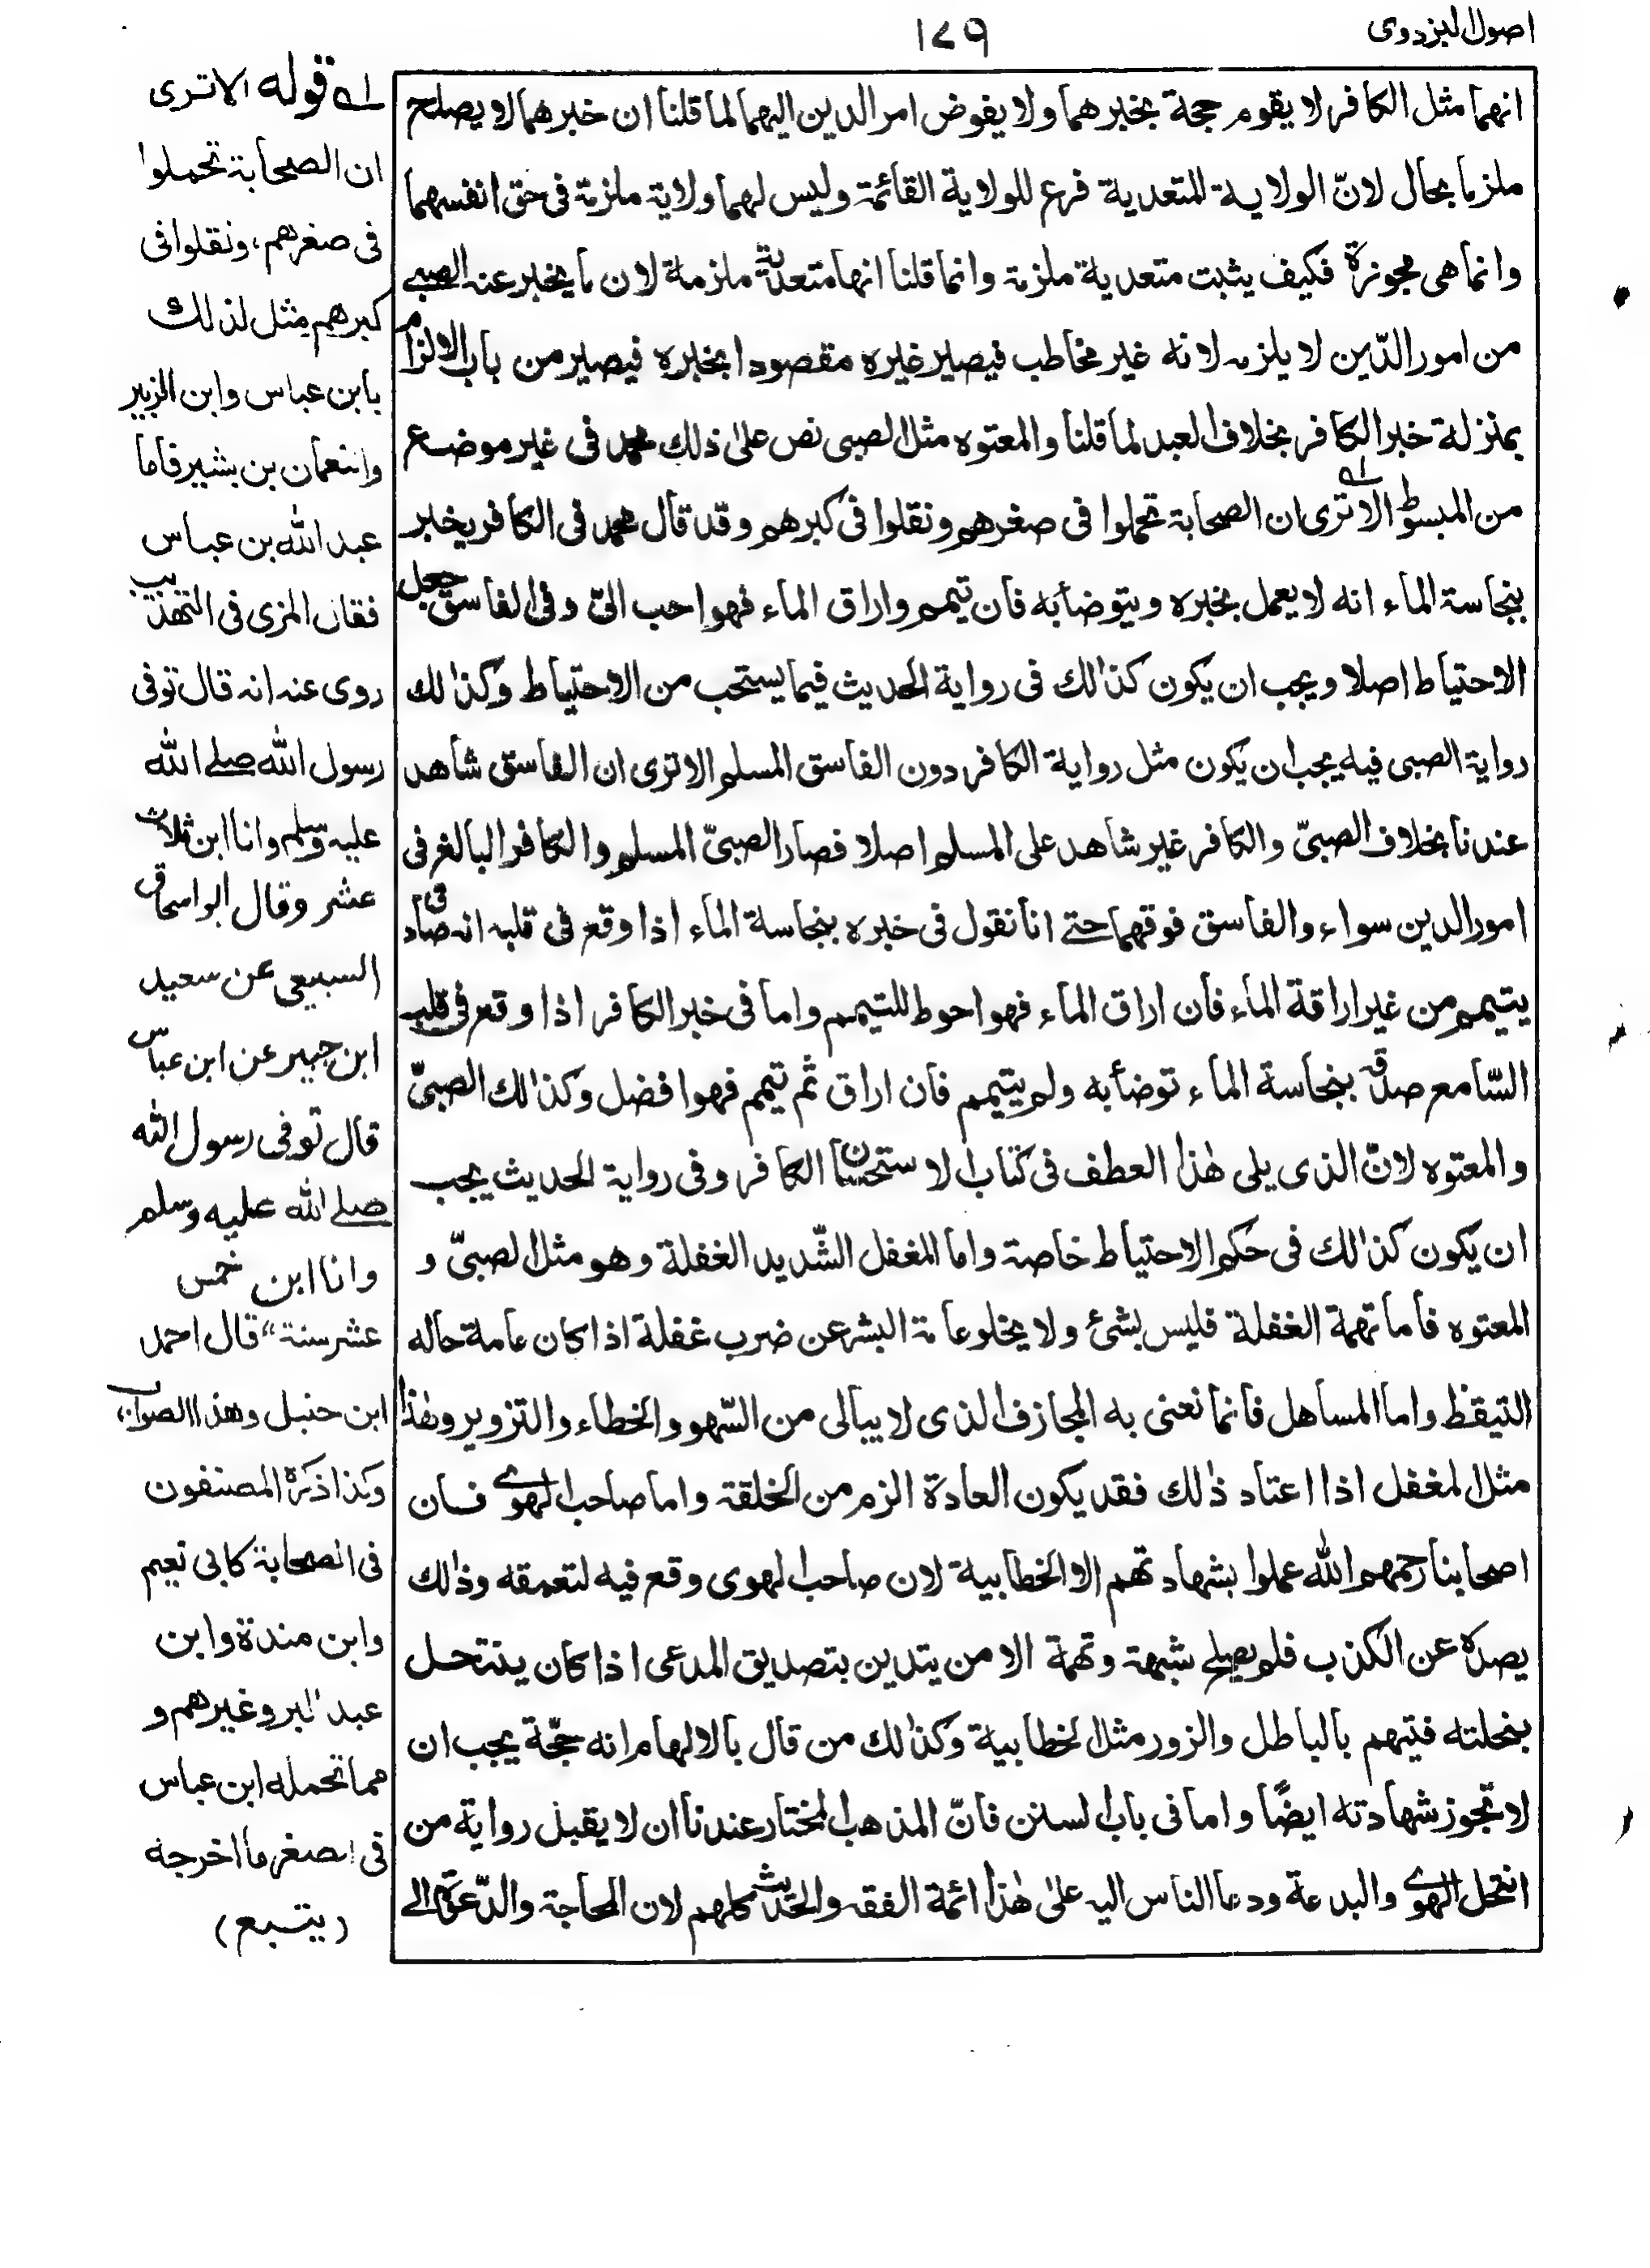 اصول البزدوی
۱۷۹
انهما مثل الكافر لا يقوم حجة بخبرهما ولا يفوض امر الدين اليهما لما قلنا ان خبرهما لا يصلح
ملزما بحال لانّ الولاية المتعدية فرع للولاية القائمة وليس لهما ولاية ملزمة فى حق انفسهما
وانما هى مجوزة فكيف يثبت متعدية ملزمة وانما قلنا انها متعدية ملزمة لان ما يخبر عنه الصبى
من امور الدّين لا يلزمه لانه غير مخاطب فيصير غيره مقصودا بخبره فيصير من باب الالزام
بمنزلة خبر الكافر بخلاف العبد لما قلنا والمعتوه مثل الصبى نص علىٰ ذلك محمد فى غير موضع
من المبسوط الا ترى ان الصحابة تحملوا فى صغرهم ونقلوا فى كبرهم وقد قال محمد فى الكافر يخبر
بنجاسة الماء انه لا يعمل بخبره ويتوضأ به فان تيمم واراق الماء فهو احب الىّ وفى الفاسق جعل
الاحتياط اصلا ويجب ان يكون كذٰلك فى رواية الحديث فيما يستحب من الاحتياط وكذٰلك
رواية الصبى فيه يجب ان يكون مثل رواية الكافر دون الفاسق المسلم الا ترى ان الفاسق شاهد
عندنا بخلاف الصبىّ والكافر غير شاهد على المسلم اصلا فصار الصبىّ المسلم والكافر البالغ فى
امور الدين سواء والفاسق فوقهما حتے انا نقول فى خبره بنجاسة الماء اذا وقع فى قلبه انه صادق
يتيمم من غير اراقة الماء فان اراق الماء فهو احوط للتيمم واما فى خبر الكافر اذا وقع فى قلب
السّامع صدقه بنجاسة الماء توضأ به ولم يتيمم فان اراق ثم تيمم فهو افضل وكذٰلك الصبىّ
والمعتوه لانّ الذى يلى هٰذا العطف فى كتاب الاستحسان الكافر وفى رواية الحديث يجب
ان يكون كذٰلك فى حكم الاحتياط خاصة واما المغفل الشّديد الغفلة وهو مثل الصبىّ و
المعتوه فأما تهمة الغفلة فليس بشئ ولا يخلو عامة البشر عن ضرب غفلة اذا كان عامة حاله
التيقظ واما المساهل فانما نعنى به المجازف الذى لا يبالى من السّهو والخطاء والتزوير وهٰذا
مثل المغفل اذا اعتاد ذٰلك فقد يكون العادة الزم من الخلقة واما صاحب الهوى فان
اصحابنا رحمهم الله عملوا بشهادتهم الا الخطابية لان صاحب الهوى وقع فيه لتعمقه وذٰلك
يصده عن الكذب فلم يصلح شبهة وتهمة الا من يتدين بتصديق المدعى اذا كان ينتحل
بنحلته فيتهم بالباطل والزور مثل الخطابية وكذٰلك من قال بالالهام انه حجّة يجب ان
لا تجوز شهادته ايضًا واما فى باب السنن فانّ المذهب المختار عندنا ان لا يقبل رواية من
انتحل الهوى والبدعة ودعا الناس اليه علىٰ هٰذا ائمة الفقه والحديث كلهم لان المحاجة والدّعوة الے
لے قوله الا ترى
ان الصحابة تحملوا
فى صغرهم، ونقلوا فى
كبرهم مثل لذلك
بابن عباس وابن الزبير
والنعمان بن بشير فاما
عبد الله بن عباس
فقال المزى فى التهذيب
روى عنه انه قال توفى
رسول الله صلے الله
عليه وسلم وانا ابن ثلاث
عشر وقال ابو اسحاق
السبيعى عن سعيد
ابن جبير عن ابن عباس
قال توفى رسول الله
صلے الله عليه وسلم
وانا ابن خمس
عشر سنة" قال احمد
ابن حنبل وهذا الصواب،
وكذا ذكره المصنفون
فى الصحابة كابى نعيم
وابن مندة وابن
عبد البر وغيرهم و
مما تحمله ابن عباس
فى الصغر ما اخرجه
(يتبع)